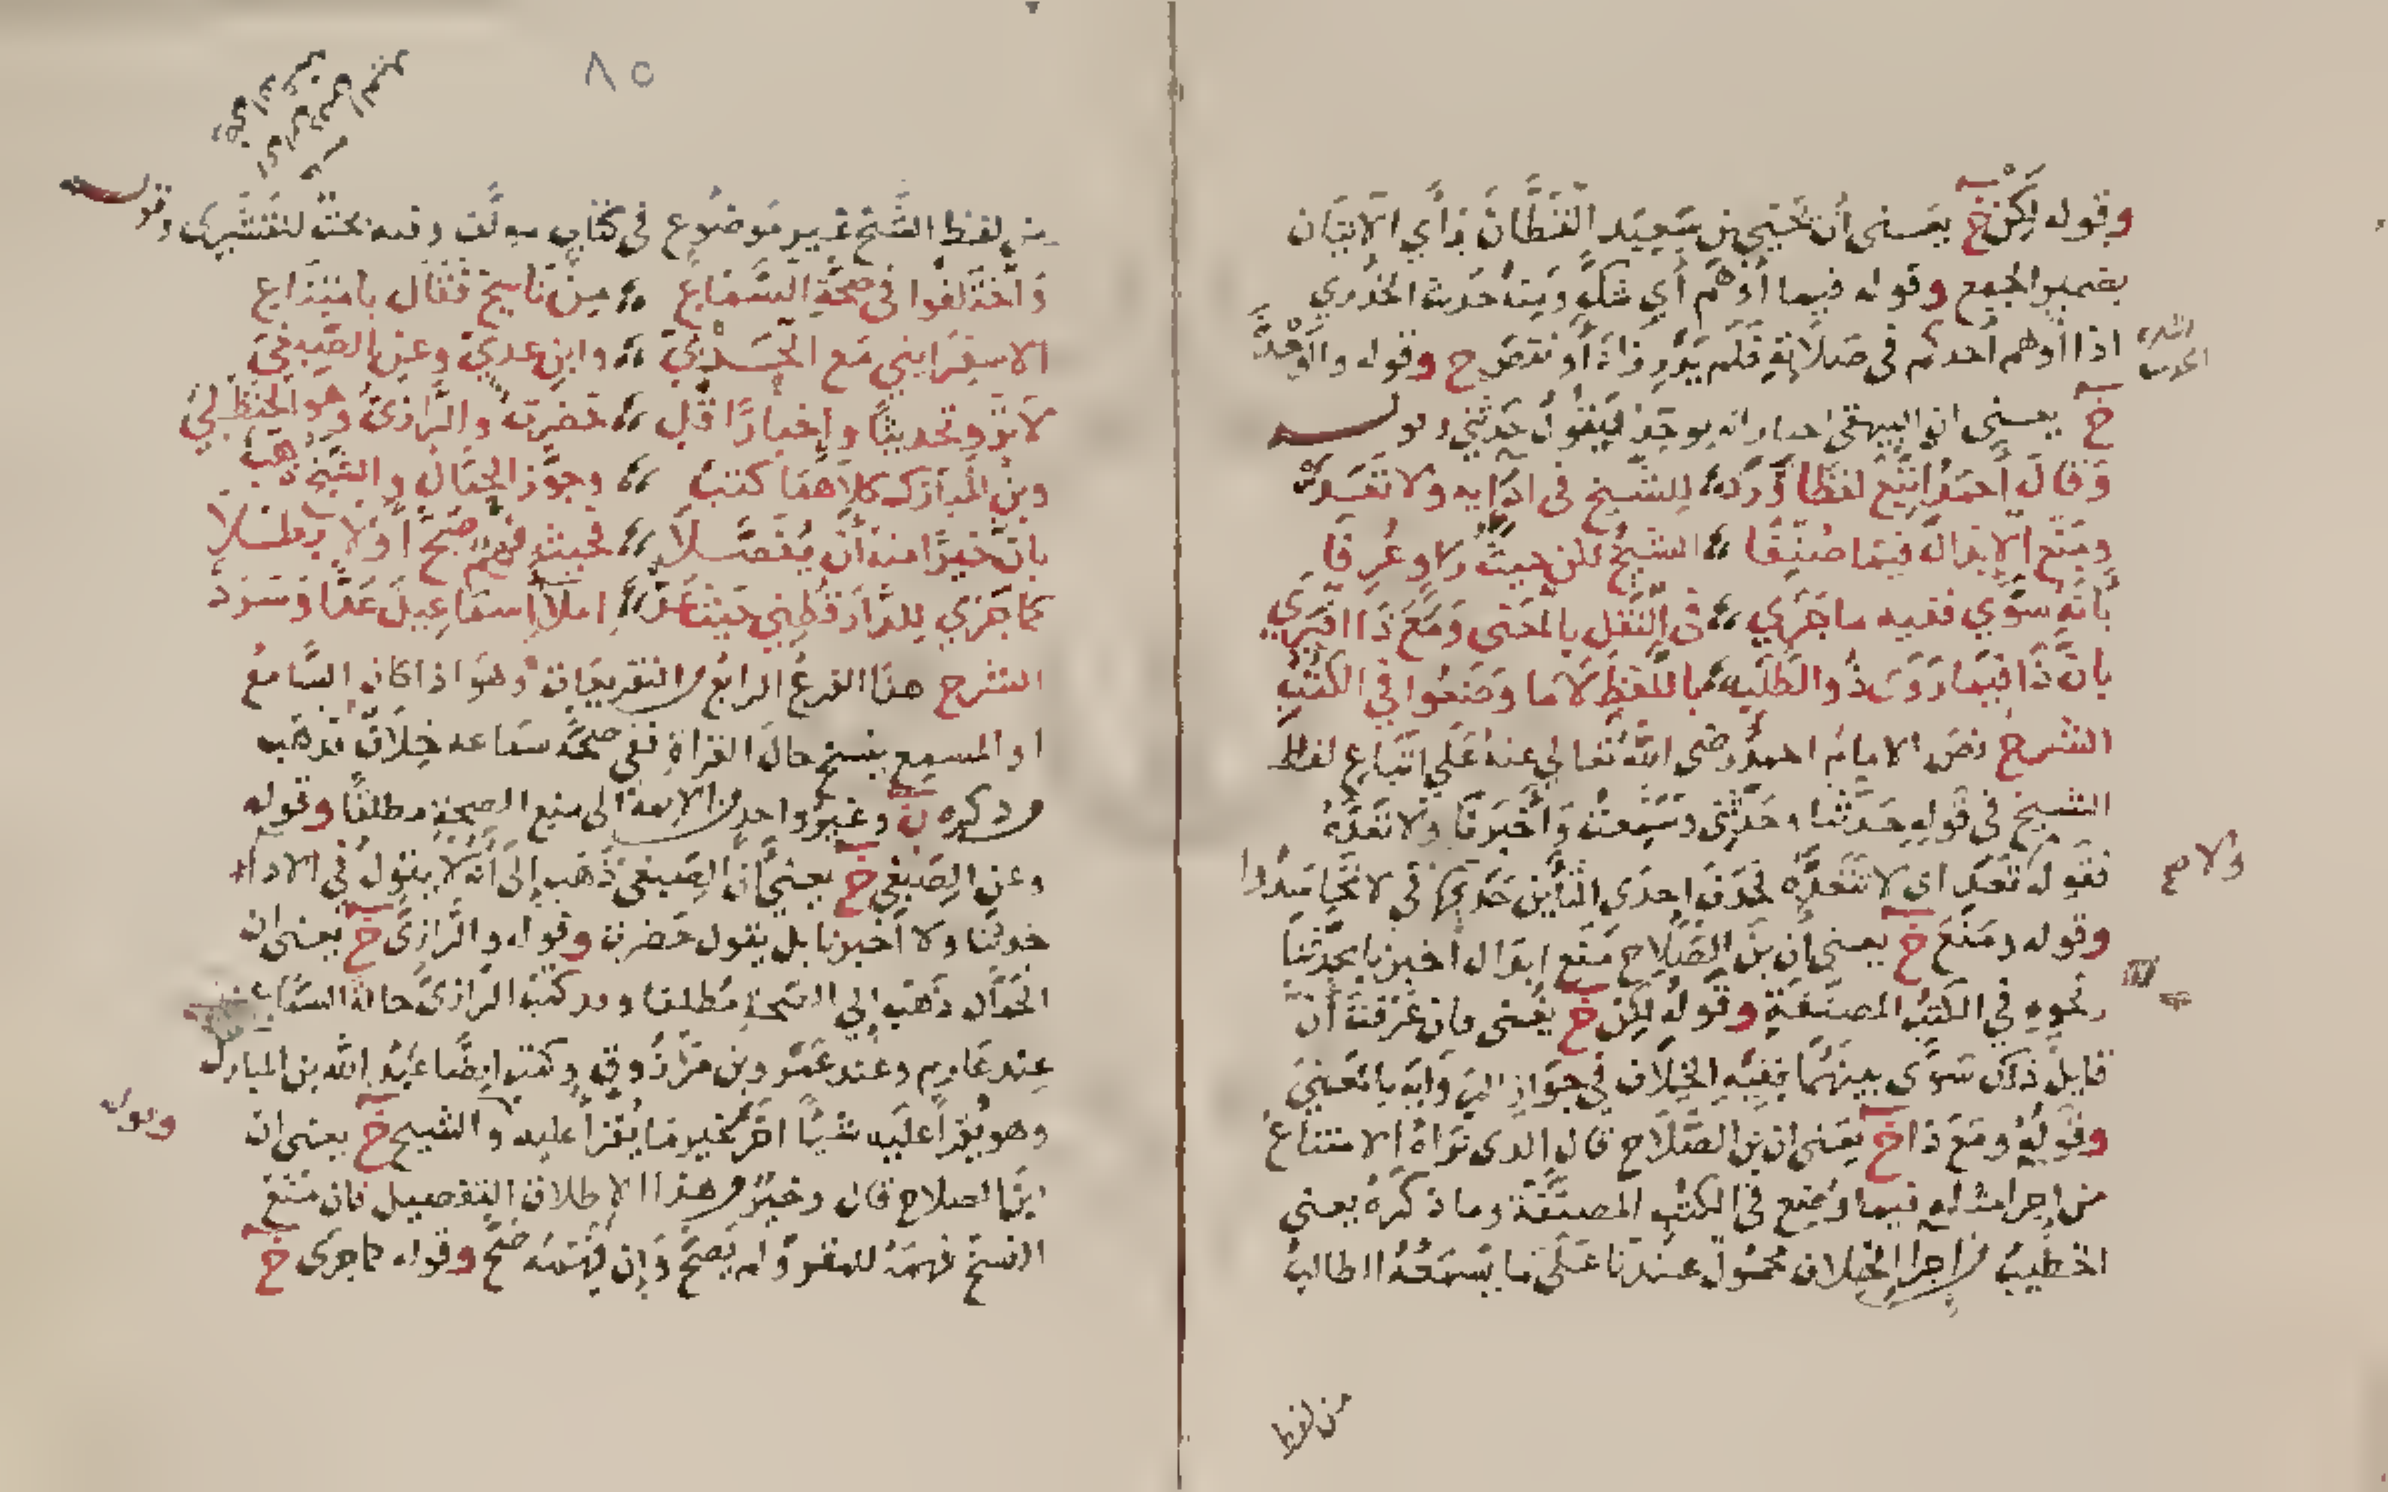 وقوله لكن خ يعني أن يحيى بن سعيد القطان رأي الاتيان
بضمير الجمع وقوله فيما أوهم أي شك ومنه حديث الخدري
اذا أوهم أحدكم في صلاته فلم يدر زاد أو نقص ح وقوله والوحدة
خ يعني ان البيهقي اختار انه يوحد فيقول حدثني وقوله
وقال أحمد اتبع لفظا ورد للشيخ في ادايه ولا تعد
ومنع الابدال فيما صنفا الشيخ لكن حيث راو عرفا
بأنه سوي ففيه ما جري في النقل بالمعنى ومع ذا افيري
بان ذا فيما روى ذو الطلب باللفظ لا ما وضعوا في الكتب
الشرح نص الامام احمد رضي الله تعالي عنه علي اتباع لفظ
الشيخ في قوله حدثنا وحدثني وسمعت وأخبرنا ولا تعده
فقوله تعد اي لا تتعده فحذف احدى التأين كحذفها في لا تحاسدوا
ولا ص
وقوله ومنع خ يعني أن بن الصلاح منع ابدال أخبرنا بحدثنا
ونحوه في الكتب المصنفة وقوله لكن خ يعني فان عرفت أن
قايل ذلك سوى بينهما ففيه الخلاف في جواز الرواية بالمعني
وقوله ومع ذا خ يعني ان بن الصلاح قال الذى نراه الامتناع
من اجرا مثله فيما وضع في الكتب المصنفة وما ذكره يعني
الخطيب من اجرا الخلاف محمول عندنا على ما يسمعه الطالب
من لفظ
٨٥
من لفظ الشيخ غير موضوع في كتاب مولف وفيه بحث لتقشيري وقوله
واختلفوا في صحة السماع من ناسخ فقال بامتناع
الاسفرايني مع الحربي وابن عدي وعن الصبغي
لا ترو تحديثا واخبارا قل حضرت والرازي وهو الحنظلي
وبن المبارك كلاهما كتب وجوز الحمال والشيخ ذهب
بان خيرا منه أن يفصلا فحيث فهم صح أو لا بطلا
كما جري للدارقطني حيث عد املا اسماعيل عدا وسرد
الشرح هذا الفرع الرابع من التفريعات وهو اذا كان السامع
او المسمع ينسخ حال القراة ففي صحة سماعه خلاف فذهب
من ذكره ن وغير واحد من الايمة الى منع الصحة مطلقا وقوله
وعن الصبغي خ يعني أن الصبغي ذهب إلى أنه لا يقول في الادا
حدثنا ولا أخبرنا بل يقول حضرت وقوله والرازى خ يعنى ان
الحمال ذهب إلي الصحة مطلقا وقد كتب الرازى حالة السماع
عند عارم وعند عمرو بن مرزوق وكتب ايضا عبد الله بن المبارك
وهو يقرأ عليه شيأ اخر غير ما يقرأ عليه والشيخ خ يعنى ان
وقوله
ابن الصلاح قال وخير من هذا الاطلاق التفصيل فان منع
النسخ فهمه للمقروء لم يصح وإن فهمه صح وقوله كما جرى خ